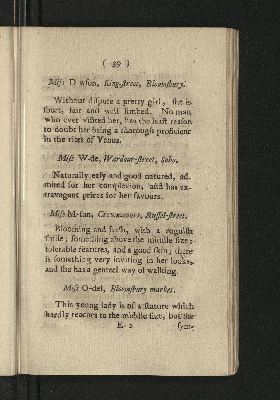 ( 39 )
Miss D wson, King-street, Bloomsbury.
Without dispute a pretty girl, she is
short, fair and well limbed. No man
who ever visited her, has the least reason
to doubt her being a thorough proficient
in the rites of Venus.
Miss W-de, Wardour-street, Soho.
Naturally easy and good natured, ad-
mired for her complexion, and has ex-
travagant prices for her favours.
Miss M-son, Crown-court, Russel-street.
Blooming and fresh, with a roguish
smile; something above the middle size;
tolerable features, and a good skin; there
is something very inviting in her looks,
and she has a genteel way of walking.
Miss O-del, Bloomsbury market.
This young lady is of a stature which
hardly reaches to the middle size, but the
E 2